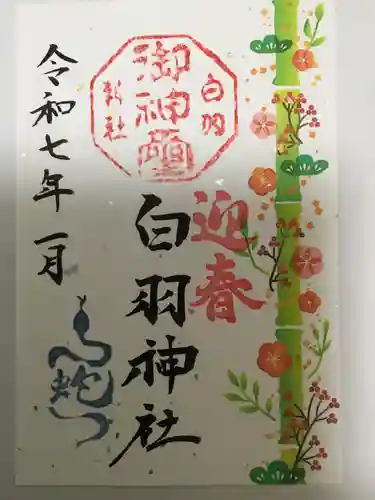 迎春
白羽神社
白羽
御神璽
神社
令和七年一月
蛇